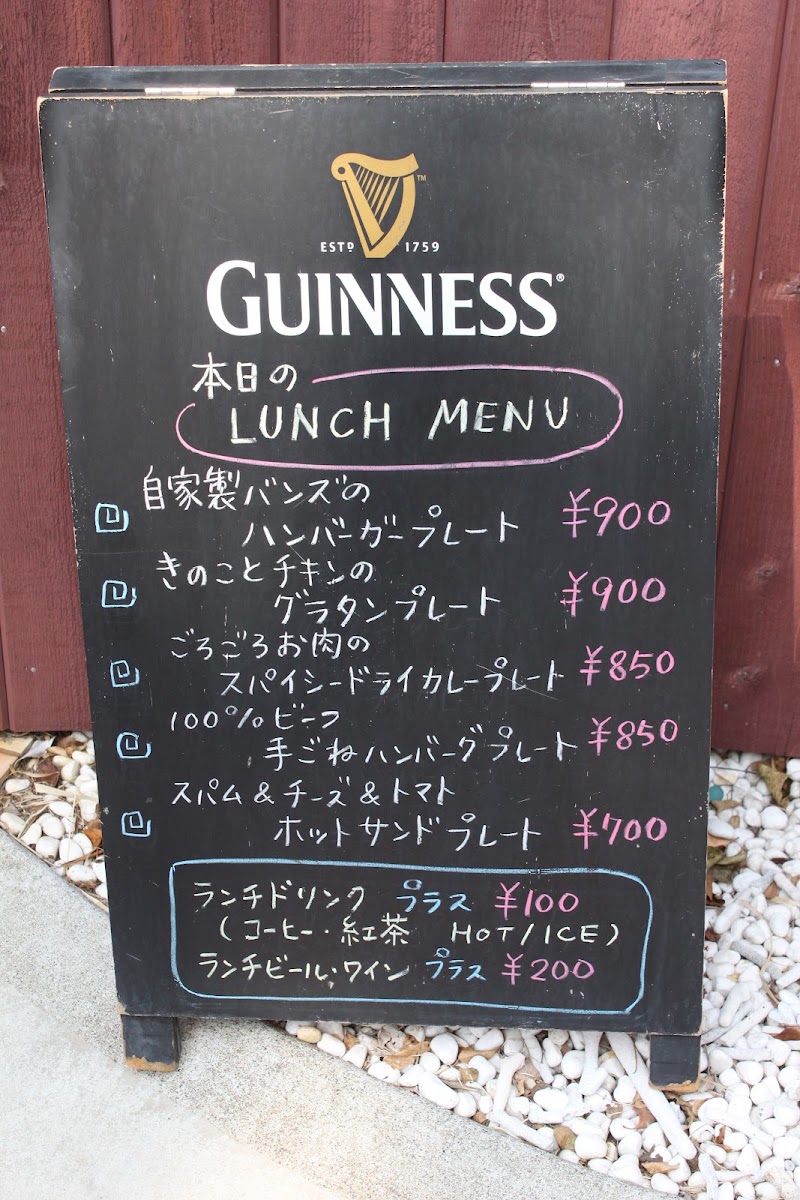 ESTD 1759
GUINNESS®
本日の
LUNCH MENU
自家製バンズの
ハンバーガープレート ¥900
きのことチキンの
グラタンプレート ¥900
ごろごろお肉の
スパイシードライカレープレート ¥850
100%ビーフ
手ごねハンバーグプレート ¥850
スパム&チーズ&トマト
ホットサンドプレート ¥700
ランチドリンク プラス ¥100
(コーヒー・紅茶 HOT/ICE)
ランチビール・ワイン プラス ¥200